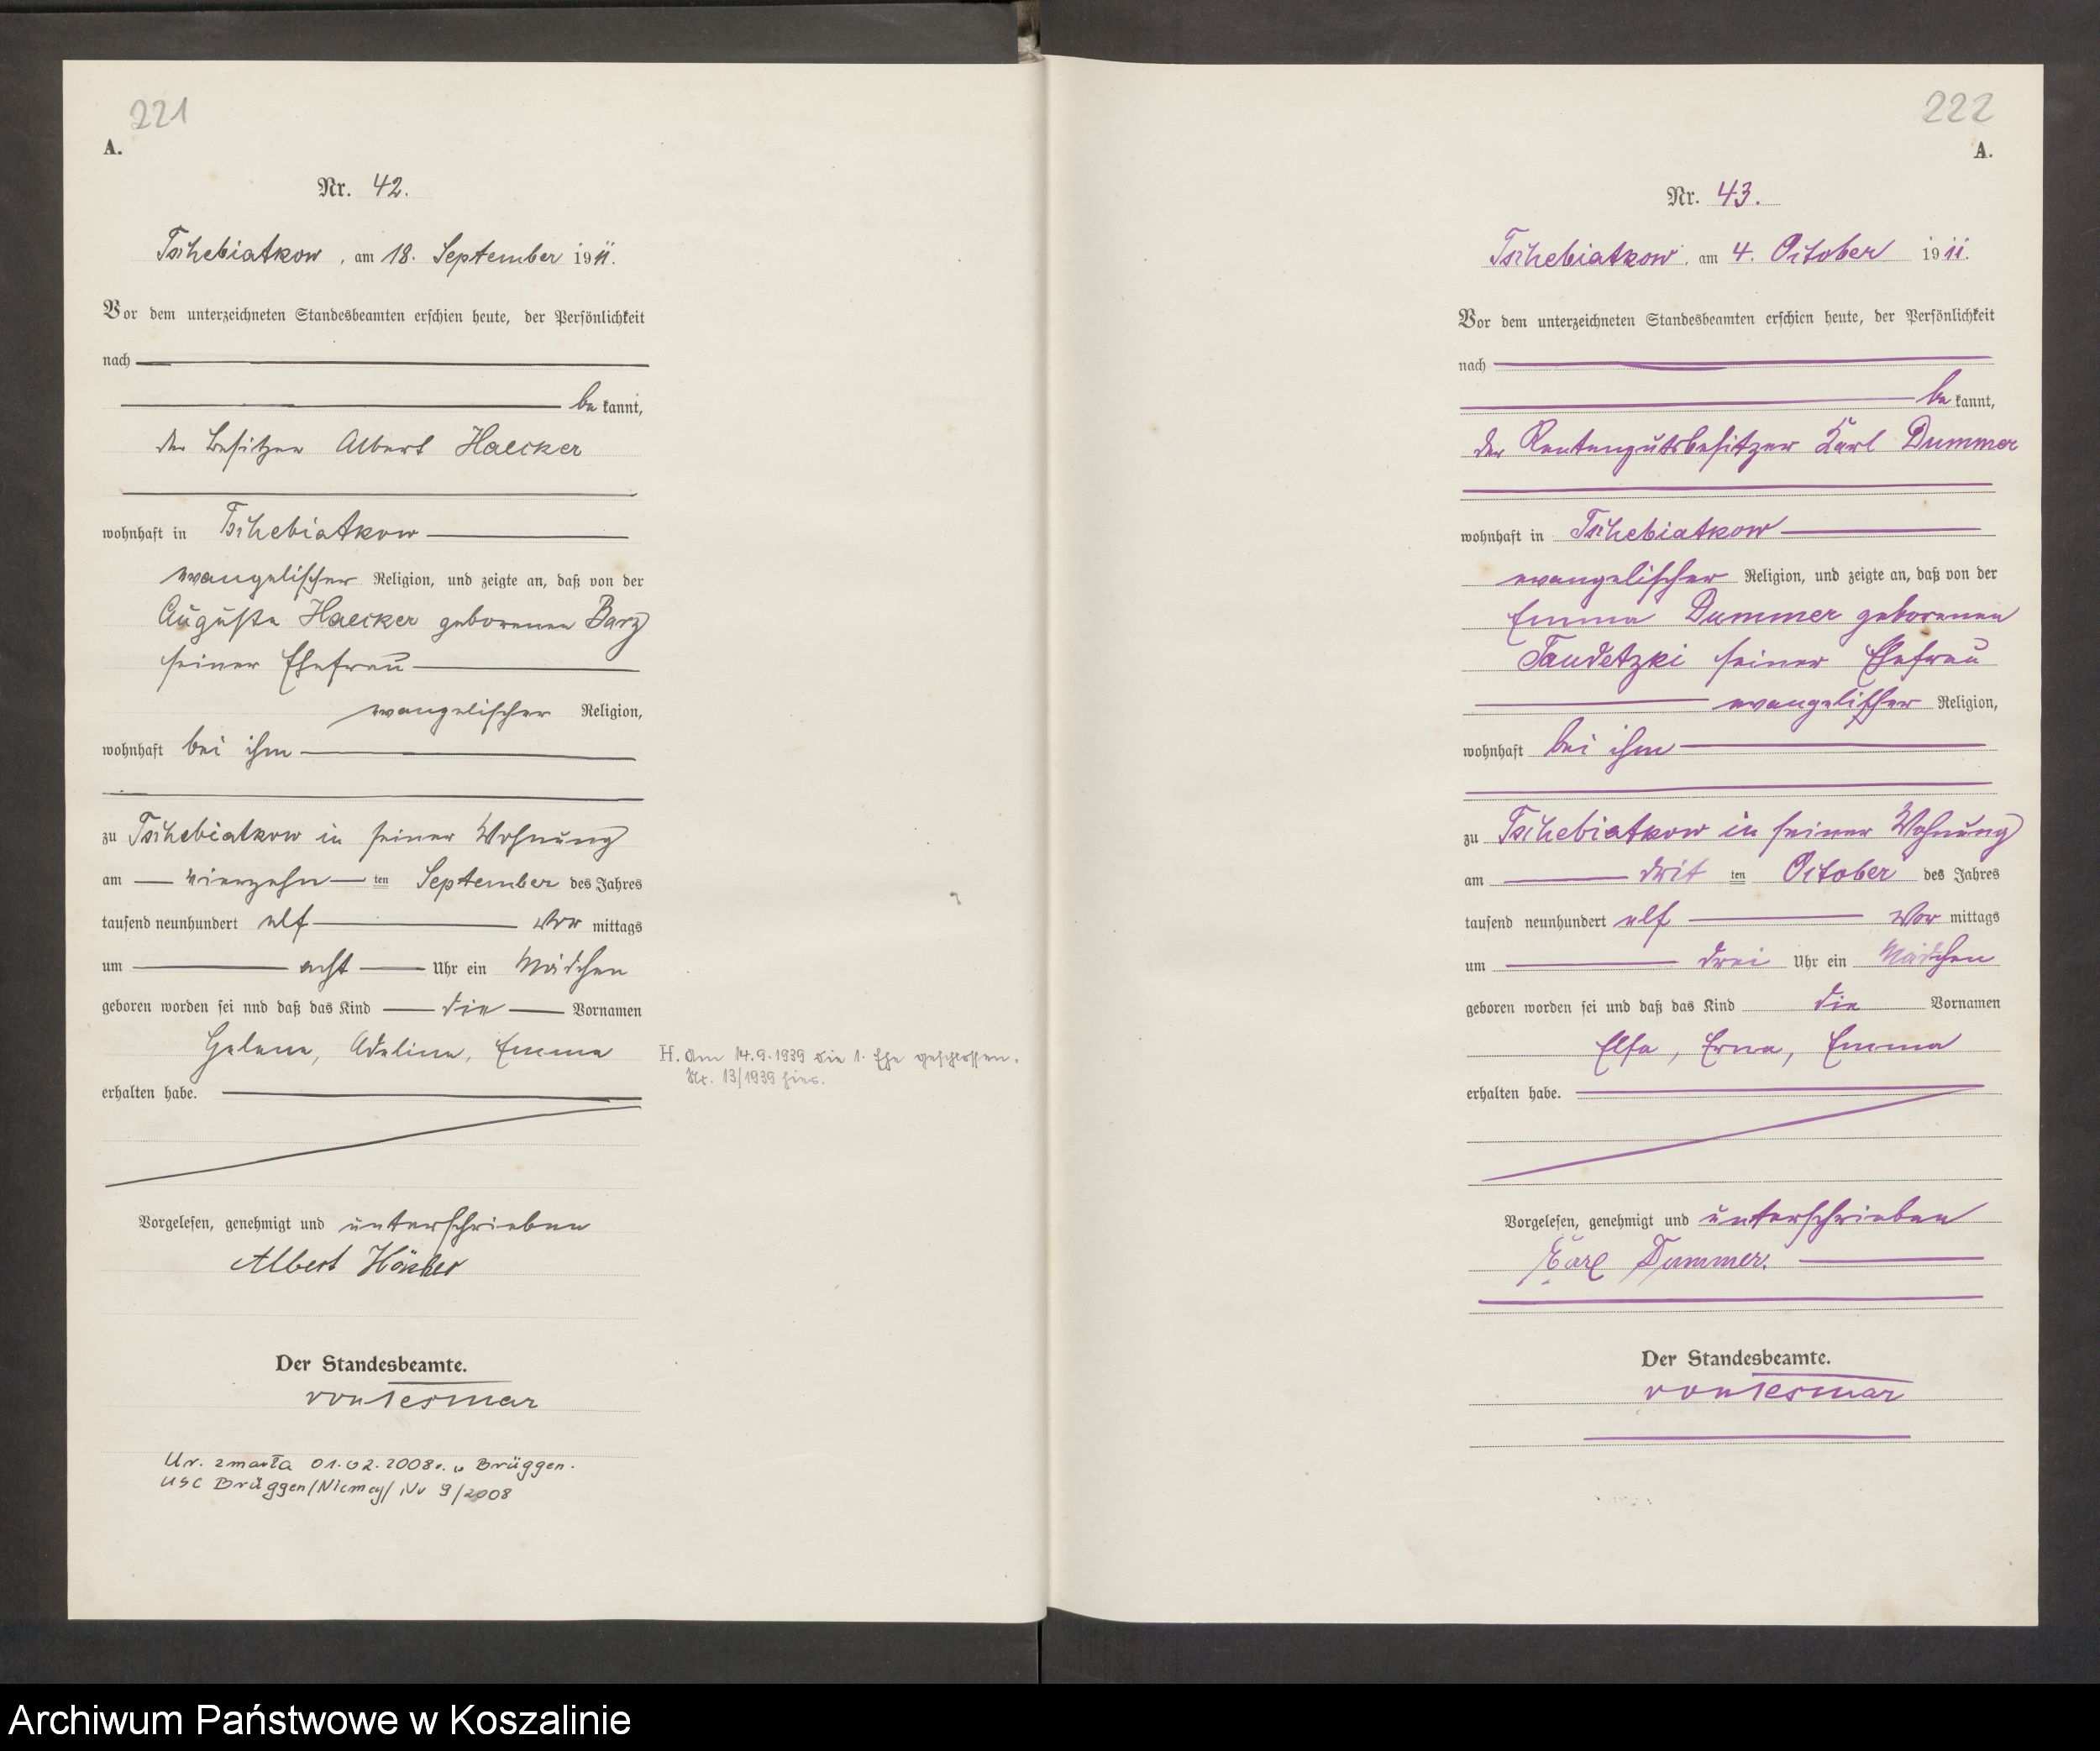 221
A.
Nr. 42.
Tschebiatkow, am 18. September 1911.
Vor dem unterzeichneten Standesbeamten erschien heute, der Persönlichkeit
nach
be kannt,
der Besitzer Albert Haecker
wohnhaft in Tschebiatkow
evangelischer Religion, und zeigte an, daß von der
Auguste Haecker geborenen Barz
seiner Ehefrau
evangelischer Religion,
wohnhaft bei ihm
zu Tschebiatkow in seiner Wohnung
am vierzehn ten September des Jahres
tausend neunhundert elf Vor mittags
um acht Uhr ein Mädchen
geboren worden sei nnd daß das Kind die Vornamen
Helene, Adeline, Emma
H. Am 14.9.1939 die 1. Ehe geschlossen.
Nr. 13/1939 hier.
erhalten habe.
Vorgelesen, genehmigt und unterschrieben
Albert Häcker
Der Standesbeamte.
von Tesmar
Ur. zmarła 01.02.2008r. w Brüggen.
USC Brüggen/Niemcy/ Nr 9/2008
222
A.
Nr. 43.
Tschebiatkow, am 4. October 1911.
Vor dem unterzeichneten Standesbeamten erschien heute, der Persönlichkeit
nach
be kannt,
der Rentengutsbesitzer Karl Dummer
wohnhaft in Tschebiatkow
evangelischer Religion, und zeigte an, daß von der
Emma Dummer geborenen
Taudetzki seiner Ehefrau
evangelischer Religion,
wohnhaft bei ihm
zu Tschebiatkow in seiner Wohnung
am drit ten October des Jahres
tausend neunhundert elf Vor mittags
um drei Uhr ein Mädchen
geboren worden sei und daß das Kind die Vornamen
Elsa, Erna, Emma
erhalten habe.
Vorgelesen, genehmigt und unterschrieben
Karl Dummer.
Der Standesbeamte.
von Tesmar
Archiwum Państwowe w Koszalinie